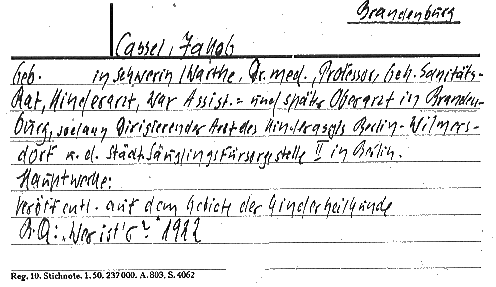 Brandenburg
Cassel, Jakob
Geb. in Schwerin/Warthe, Dr. med., Professor, Geh. Sanitäts-
Rat, Kinderarzt, War Assist.- und später Oberarzt in Branden-
burg, sodann Dirigierender Arzt des Kinderasyls Berlin-Wilmers-
dorf u. d. städt. Säuglingsfürsorgestelle II in Berlin.
Hauptwerke:
Veröffentl. auf dem Gebiete der Kinderheilkunde
B.Q.: "Wer ist's?" 1922
Reg. 10. Stichnote. 1. 50. 237000. A. 803, S. 4062